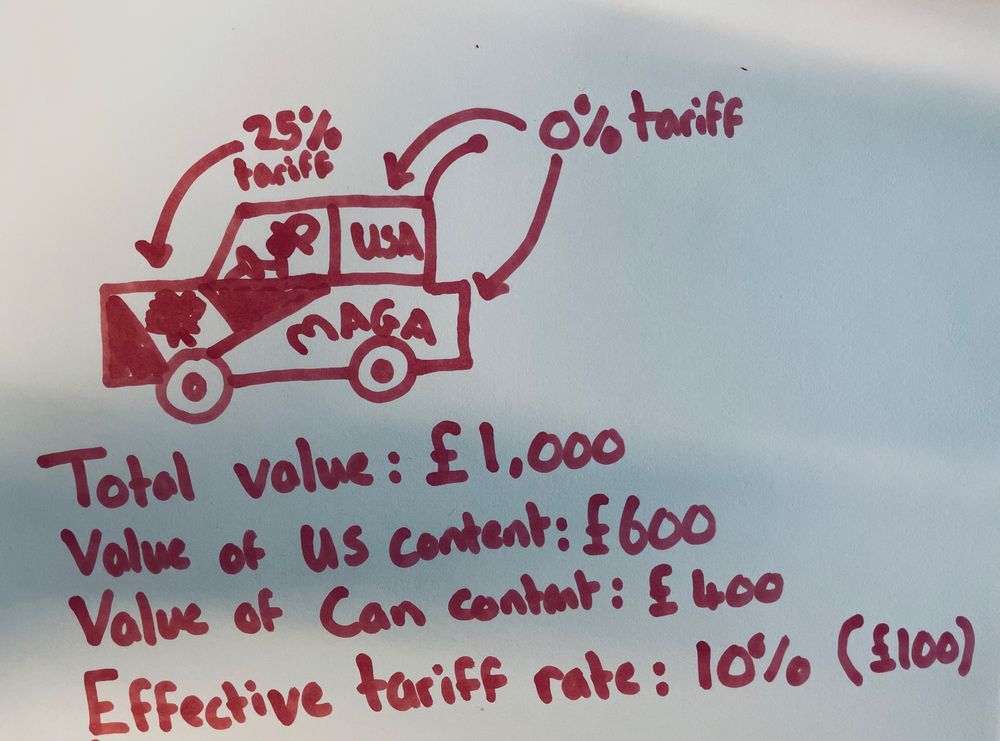 25%
tariff
0% tariff
USA
MAGA
Total value: £1,000
Value of US content: £600
Value of Can content: £400
Effective tariff rate: 10% (£100)